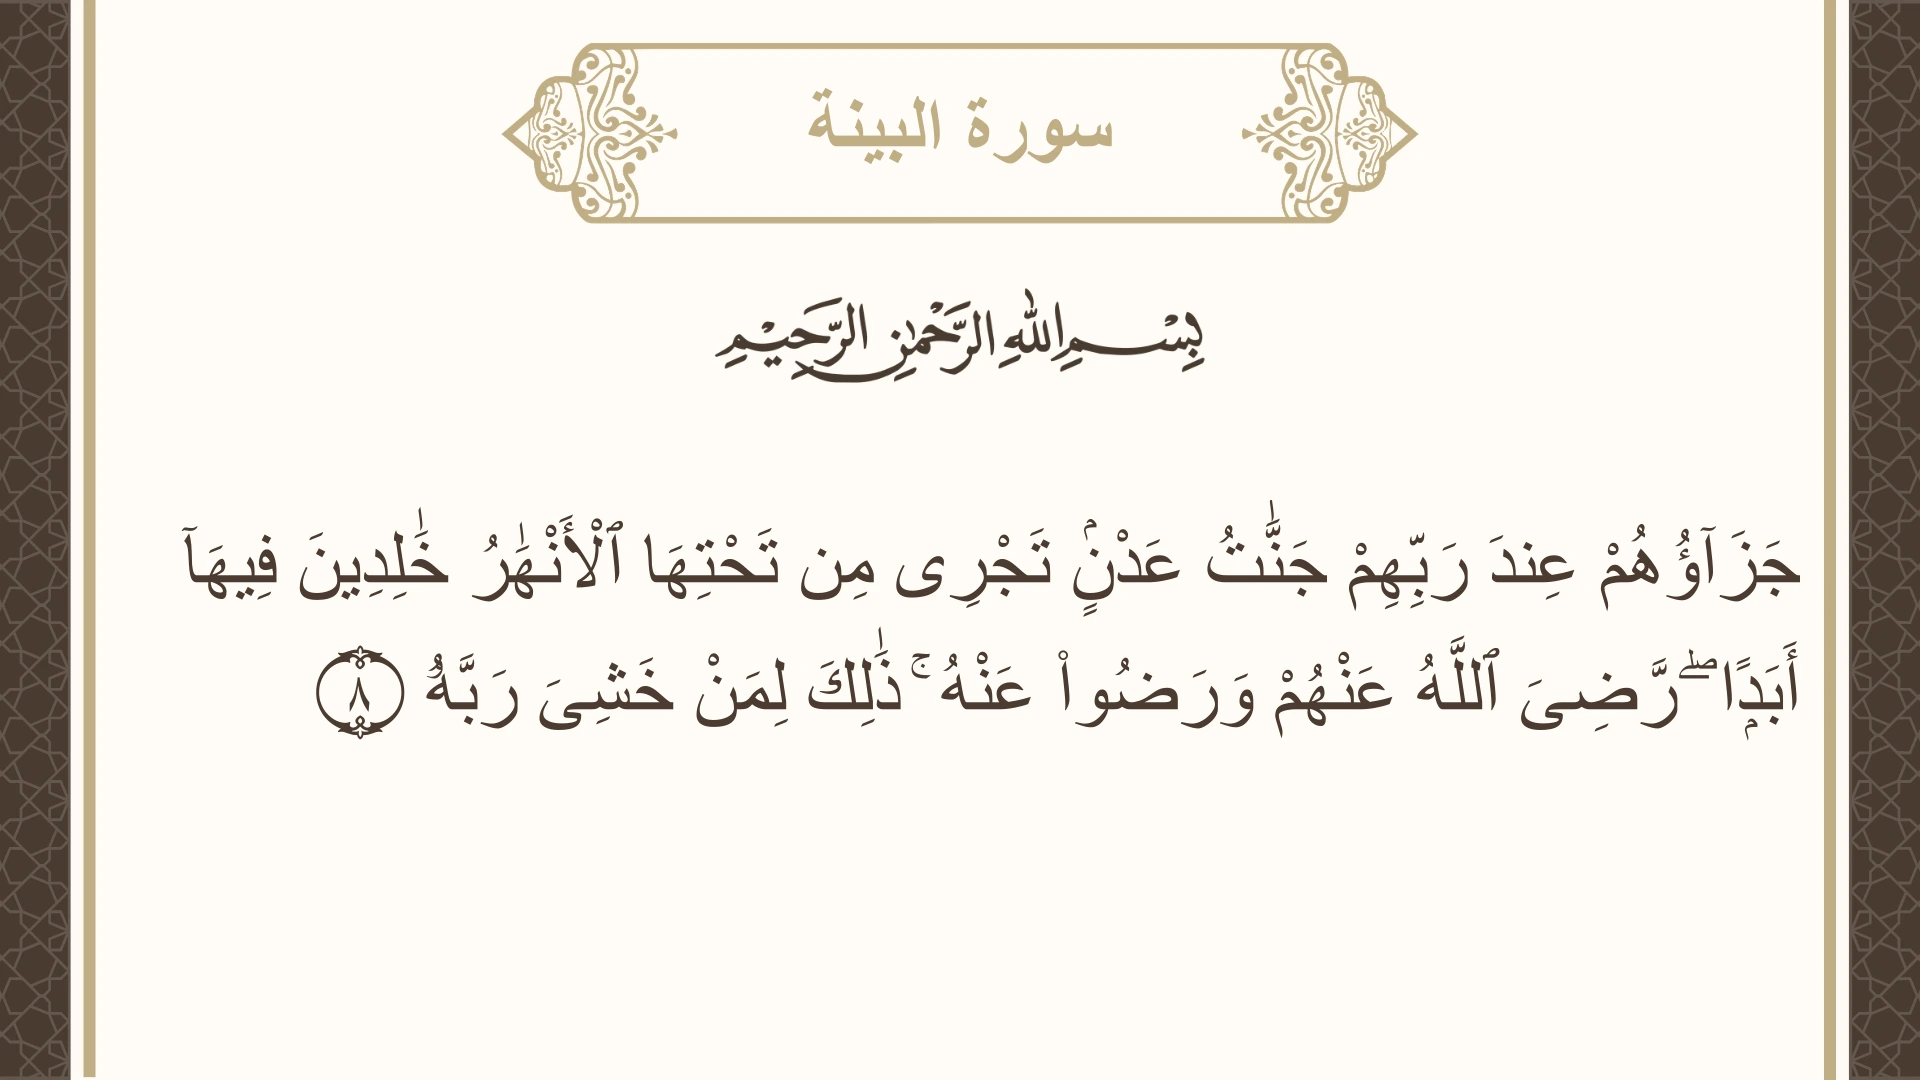 سورة البينة
بِسْمِ اللهِ الرَّحْمٰنِ الرَّحِيْمِ
جَزَآؤُهُمْ عِندَ رَبِّهِمْ جَنَّٰتُ عَدْنٍۢ تَجْرِى مِن تَحْتِهَا ٱلْأَنْهَٰرُ خَٰلِدِينَ فِيهَآ
أَبَدًۭا ۖ رَّضِىَ ٱللَّهُ عَنْهُمْ وَرَضُوا۟ عَنْهُ ۚ ذَٰلِكَ لِمَنْ خَشِىَ رَبَّهُۥ ٨